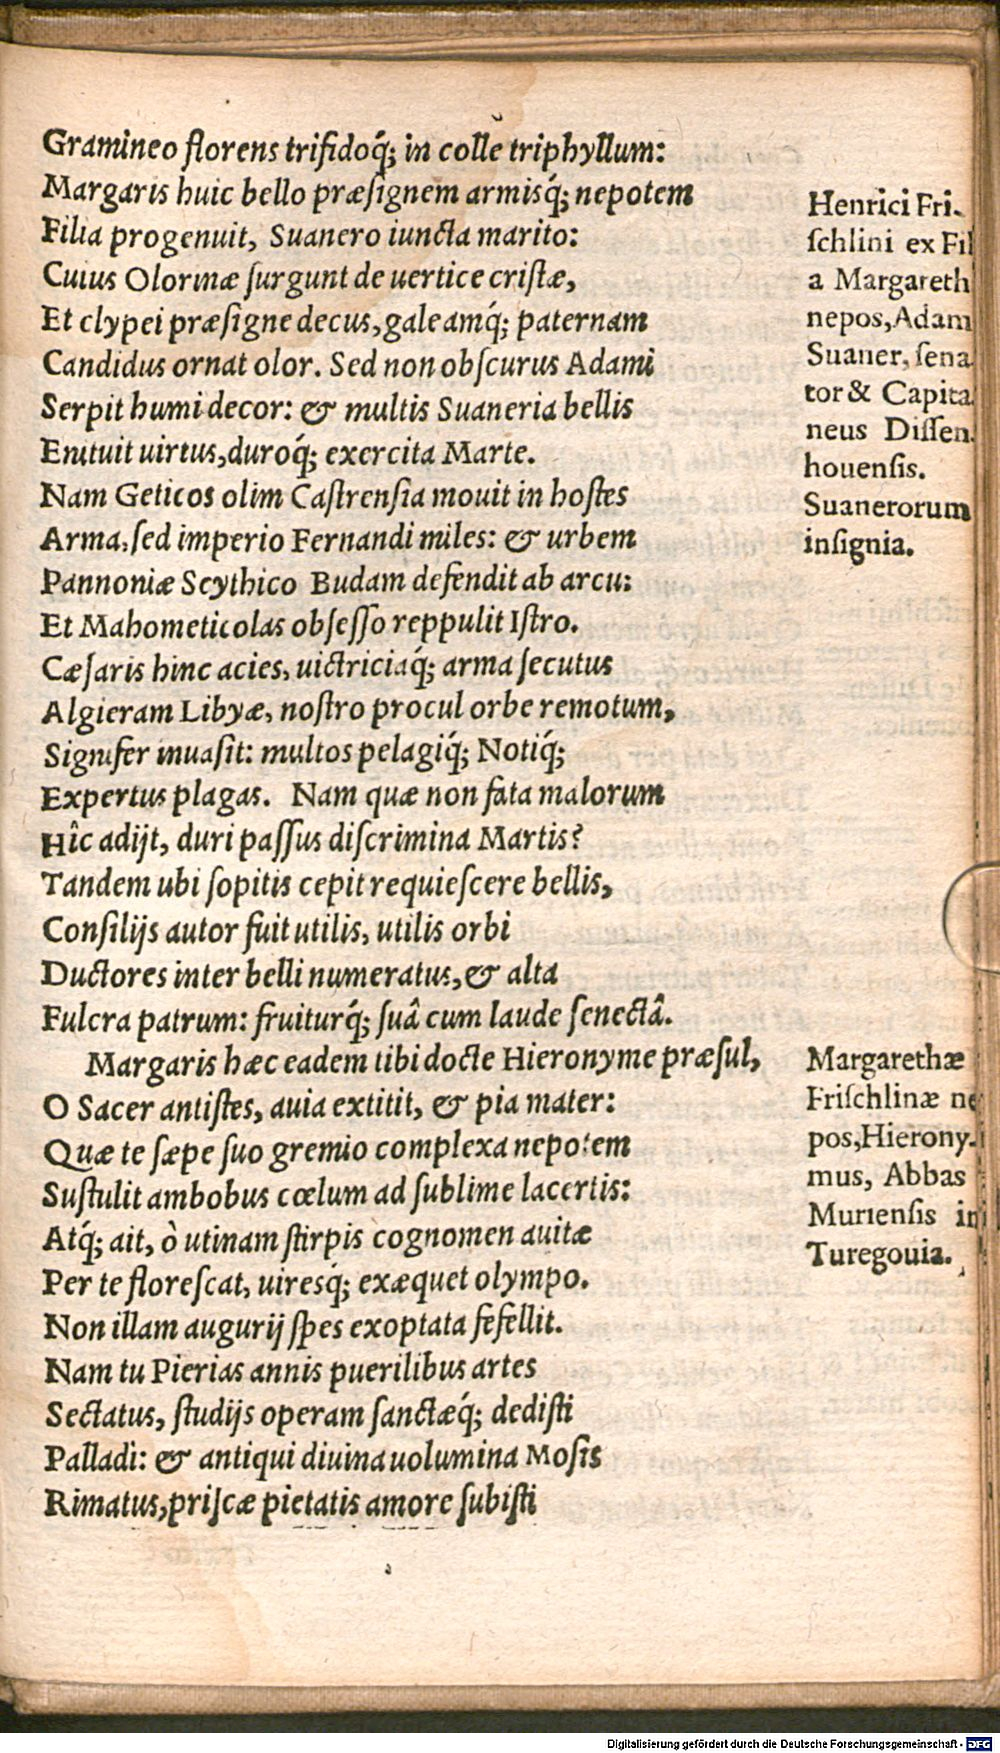 Gramineo florens trifidoq́; in colle triphyllum:
Margaris huic bello præſignem armisq́; nepotem
Filia progenuit, Suanero iuncta marito:
Cuius Olorinæ ſurgunt de uertice criſtæ,
Et clypei præſigne decus, galeamq́; paternam
Candidus ornat olor. Sed non obſcurus Adami
Serpit humi decor: & multis Suaneria bellis
Enituit uirtus, duroq́; exercita Marte.
Nam Geticos olim Caſtrenſia mouit in hoſtes
Arma, ſed imperio Fernandi miles: & urbem
Pannoniæ Scythico Budam defendit ab arcu:
Et Mahometicolas obſeſſo reppulit Iſtro.
Cæſaris hinc acies, uictriciaq́; arma ſecutus
Algieram Libyæ, noſtro procul orbe remotum,
Signifer inuaſit: multos pelagiq́; Notiq́;
Expertus plagas. Nam quæ non fata malorum
Hîc adijt, duri paſſus diſcrimina Martis?
Tandem ubi ſopitis cepit requieſcere bellis,
Conſilijs autor fuit utilis, utilis orbi
Ductores inter belli numeratus, & alta
Fulcra patrum: fruiturq́; ſuâ cum laude ſenectâ.
Margaris hæc eadem tibi docte Hieronyme præſul,
O Sacer antiſtes, auia extitit, & pia mater:
Quæ te ſæpe ſuo gremio complexa nepotem
Suſtulit ambobus cœlum ad ſublime lacertis:
Atq́; ait, ò utinam ſtirpis cognomen auitæ
Per te floreſcat, uiresq́; exæquet olympo.
Non illam augurij ſpes exoptata fefellit.
Nam tu Pierias annis puerilibus artes
Sectatus, ſtudijs operam ſanctæq́; dediſti
Palladi: & antiqui diuina uolumina Moſis
Rimatus, priſcæ pietatis amore ſubiſti
Henrici Fri-
ſchlini ex Fil
a Margareth
nepos, Adam
Suaner, ſena
tor & Capita
neus Diſſen-
houenſis.
Suanerorum
inſignia.
Margarethæ
Friſchlinæ ne
pos, Hierony-
mus, Abbas
Murienſis in
Turegouia.
Digitalisierung gefördert durch die Deutsche Forschungsgemeinschaft - DFG